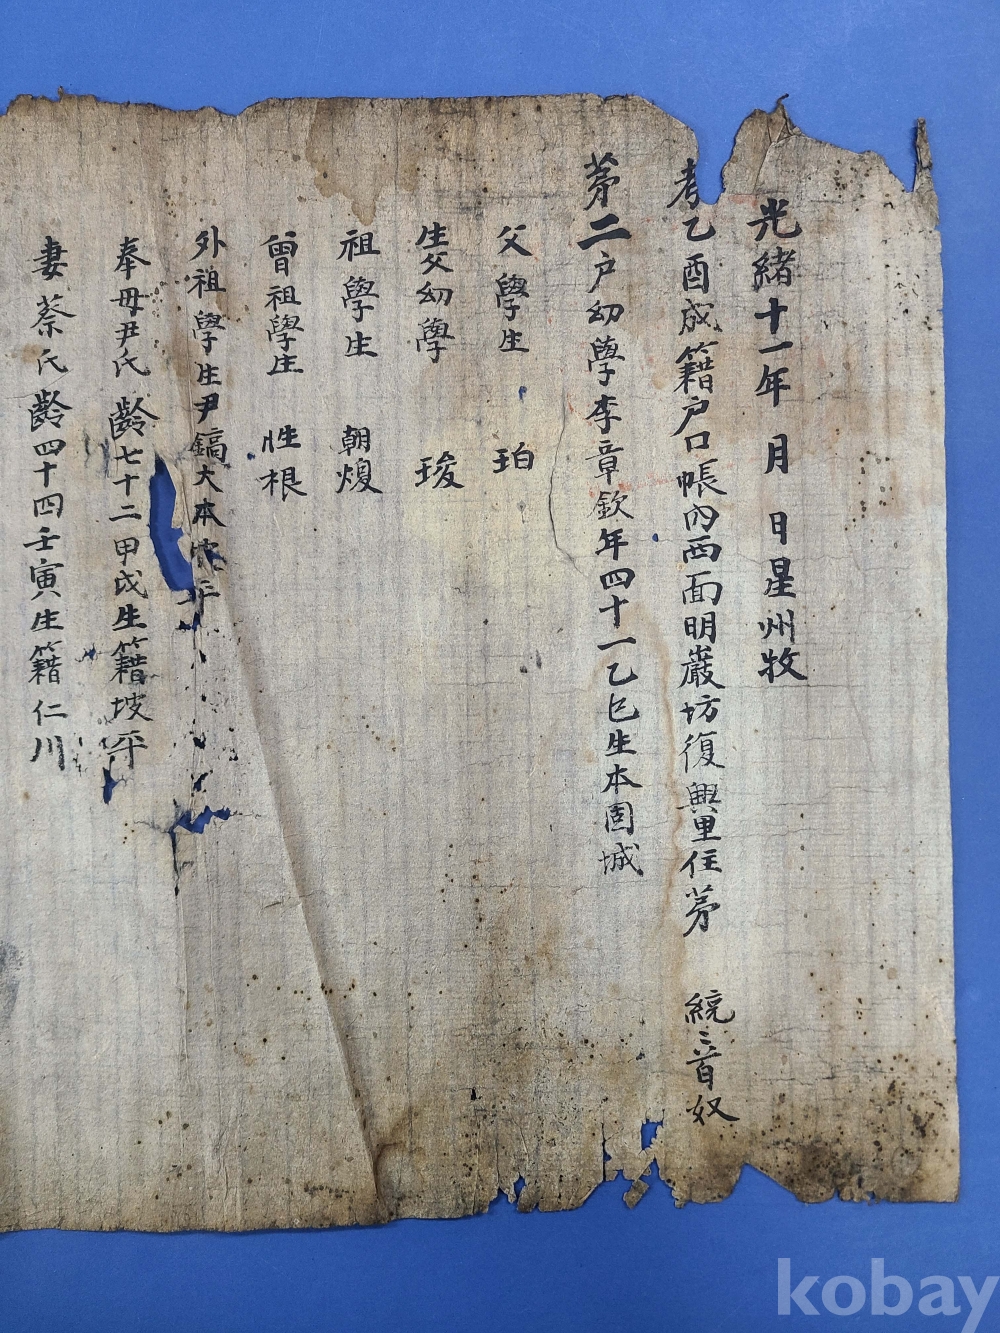 光緖十一年 月 日星州牧
考乙酉成籍户口帳內西面明巖坊復興里住苐 統首奴
苐二户幼學李章欽年四十一乙巳生本固城
父學生 珀
生父幼學 琙
祖學生 朝煥
曾祖學生 性根
外祖學生尹鎬大本坡平
奉母尹氏齡七十二甲戌生籍坡平
妻蔡氏齡四十四壬寅生籍仁川
kobay